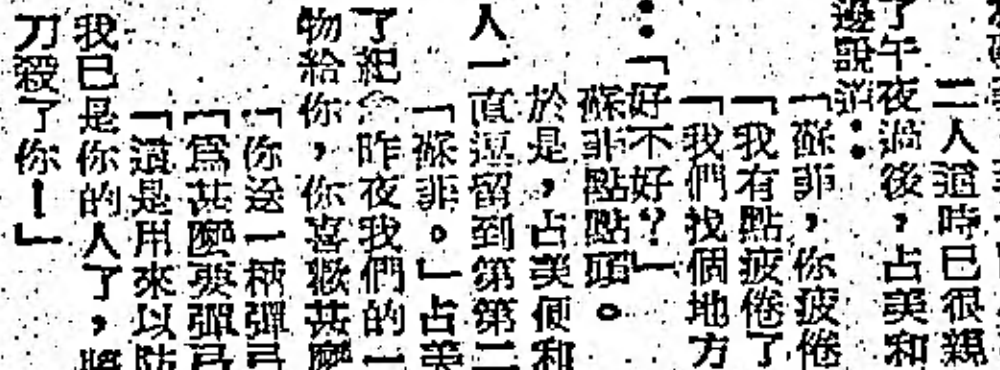 二人這時已很親
了午夜過後，占美和
邊說道：
「蘇菲，你疲倦
「我有點疲倦了
「我們找個地方
：「好不好？」
蘇菲點點頭。
於是，占美便和
人一直逗留到第第二
「蘇菲。」占美
了紀念昨夜我們的一
物給你，你喜歡甚麼
「你送一柄彈弓
「為甚麼要彈弓
「這是用來以防
我已是你的人了，將
刀殺了你！」